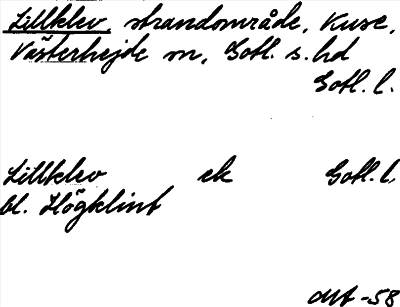 Lillklev, strandområde, Kuse,
Västerhejde sn, Gotl. s. hd
Gotl. l.
Lillklev ek Gotl. l.
bl. Högklint
-58